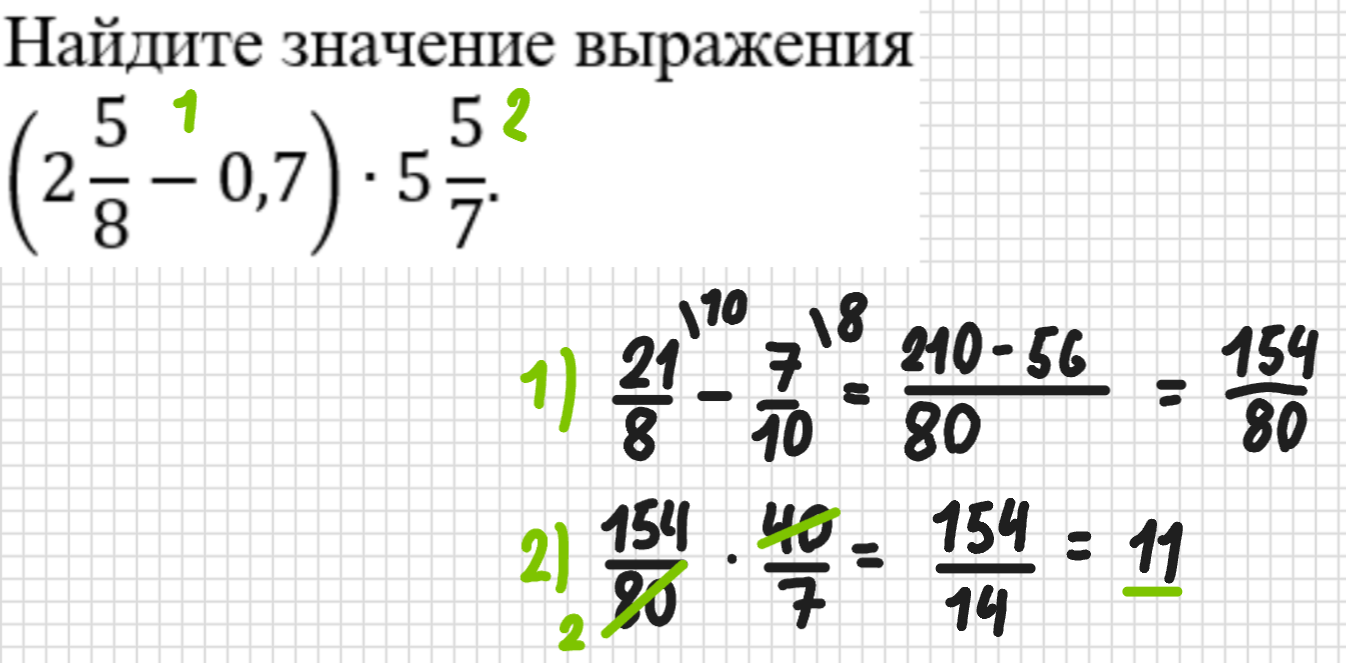 Найдите значение выражения
(2 5/8 − 0,7) · 5 5/7.
1 2
1) 21/8 \10 − 7/10 \8 = 210 - 56/80 = 154/80
2) 154/80 · 40/7 = 154/14 = 11
2